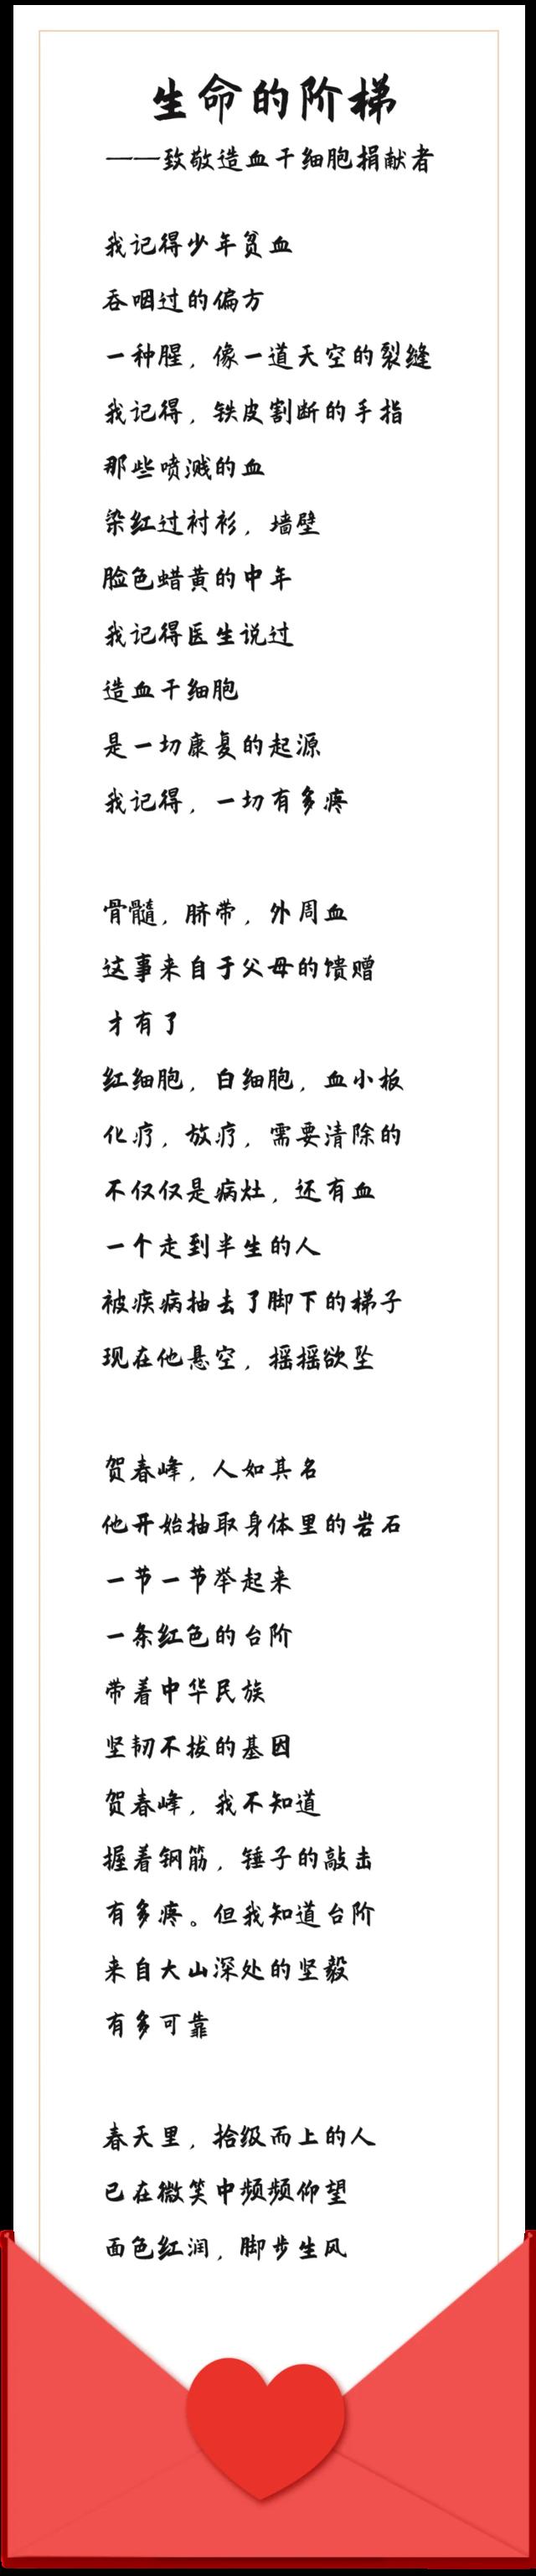 生命的阶梯
——致敬造血干细胞捐献者
我记得少年贫血
吞咽过的偏方
一种腥，像一道天空的裂缝
我记得，铁皮割断的手指
那些喷溅的血
染红过衬衫，墙壁
脸色蜡黄的中年
我记得医生说过
造血干细胞
是一切康复的起源
我记得，一切有多疼
骨髓，脐带，外周血
这事来自于父母的馈赠
才有了
红细胞，白细胞，血小板
化疗，放疗，需要清除的
不仅仅是病灶，还有血
一个走到半生的人
被疾病抽去了脚下的梯子
现在他悬空，摇摇欲坠
贺春峰，人如其名
他开始抽取身体里的岩石
一节一节举起来
一条红色的台阶
带着中华民族
坚韧不拔的基因
贺春峰，我不知道
握着钢筋，锤子的敲击
有多疼。但我知道台阶
来自大山深处的坚毅
有多可靠
春天里，拾级而上的人
已在微笑中频频仰望
面色红润，脚步生风